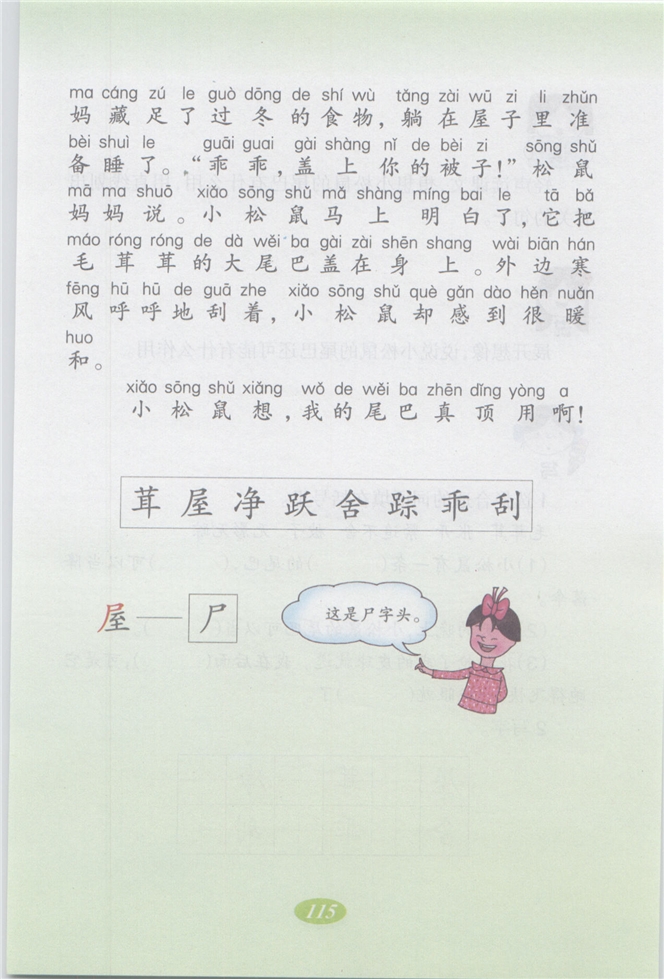 ma cáng zú le guò dōng de shí wù tǎng zài wū zi li zhǔn
妈藏足了过冬的食物，躺在屋子里准
bèi shuì le guāi guai gài shàng nǐ de bèi zi sōng shǔ
备睡了。“乖乖盖上你的被子！”松鼠
mā ma shuō xiǎo sōng shǔ mǎ shàng míng bai le tā bǎ
妈妈说。小松鼠马上明白了，它把
máo róng róng de dà wěi ba gài zài shēn shang wài biān hán
毛茸茸的大尾巴盖在身上。外边寒
fēng hū hū de guā zhe xiǎo sōng shǔ què gǎn dào hěn nuǎn
风呼呼地刮着，小松鼠却感到很暖
huo
和。
xiǎo sōng shǔ xiǎng wǒ de wěi ba zhēn dǐng yòng a
小松鼠想，我的尾巴真顶用啊！
茸屋净跃舍踪乖刮
屋——尸
这是尸字头。
115